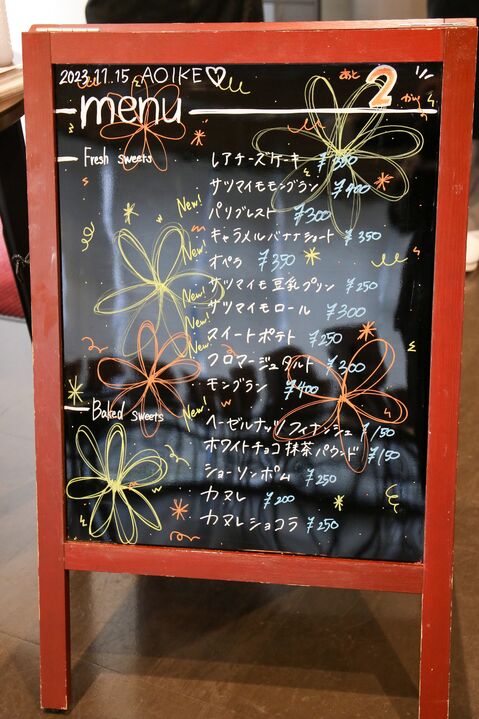 2023.11.15 AOIKE♡
あと2かい
menu
Fresh sweets
レアチーズケーキ ¥350
サツマイモモンブラン ¥400
New! パリブレスト ¥300
キャラメルバナナショート ¥350
New! オペラ ¥350
サツマイモ豆乳プリン ¥250
New! サツマイモロール ¥300
New! スイートポテト ¥250
New! フロマージュタルト ¥300
モンブラン ¥400
Baked sweets
New! ヘーゼルナッツフィナンシェ ¥150
ホワイトチョコ抹茶パウンド ¥150
ショーソンポム ¥250
カヌレ ¥200
カヌレショコラ ¥250